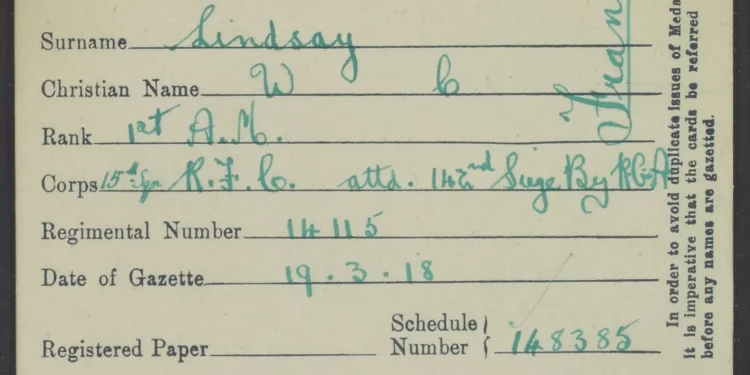 Surname Lindsay
Christian Name W C
Rank 1st A.M.
Corps 15th Sqn R.F.C. attd. 142nd Siege By R.G.A
Regimental Number 14115
Date of Gazette 19.3.18
Schedule
Registered Paper Number 148385
Fran
In order to avoid duplicate issues of Meda
it is imperative that the cards be referred
before any names are gazetted.